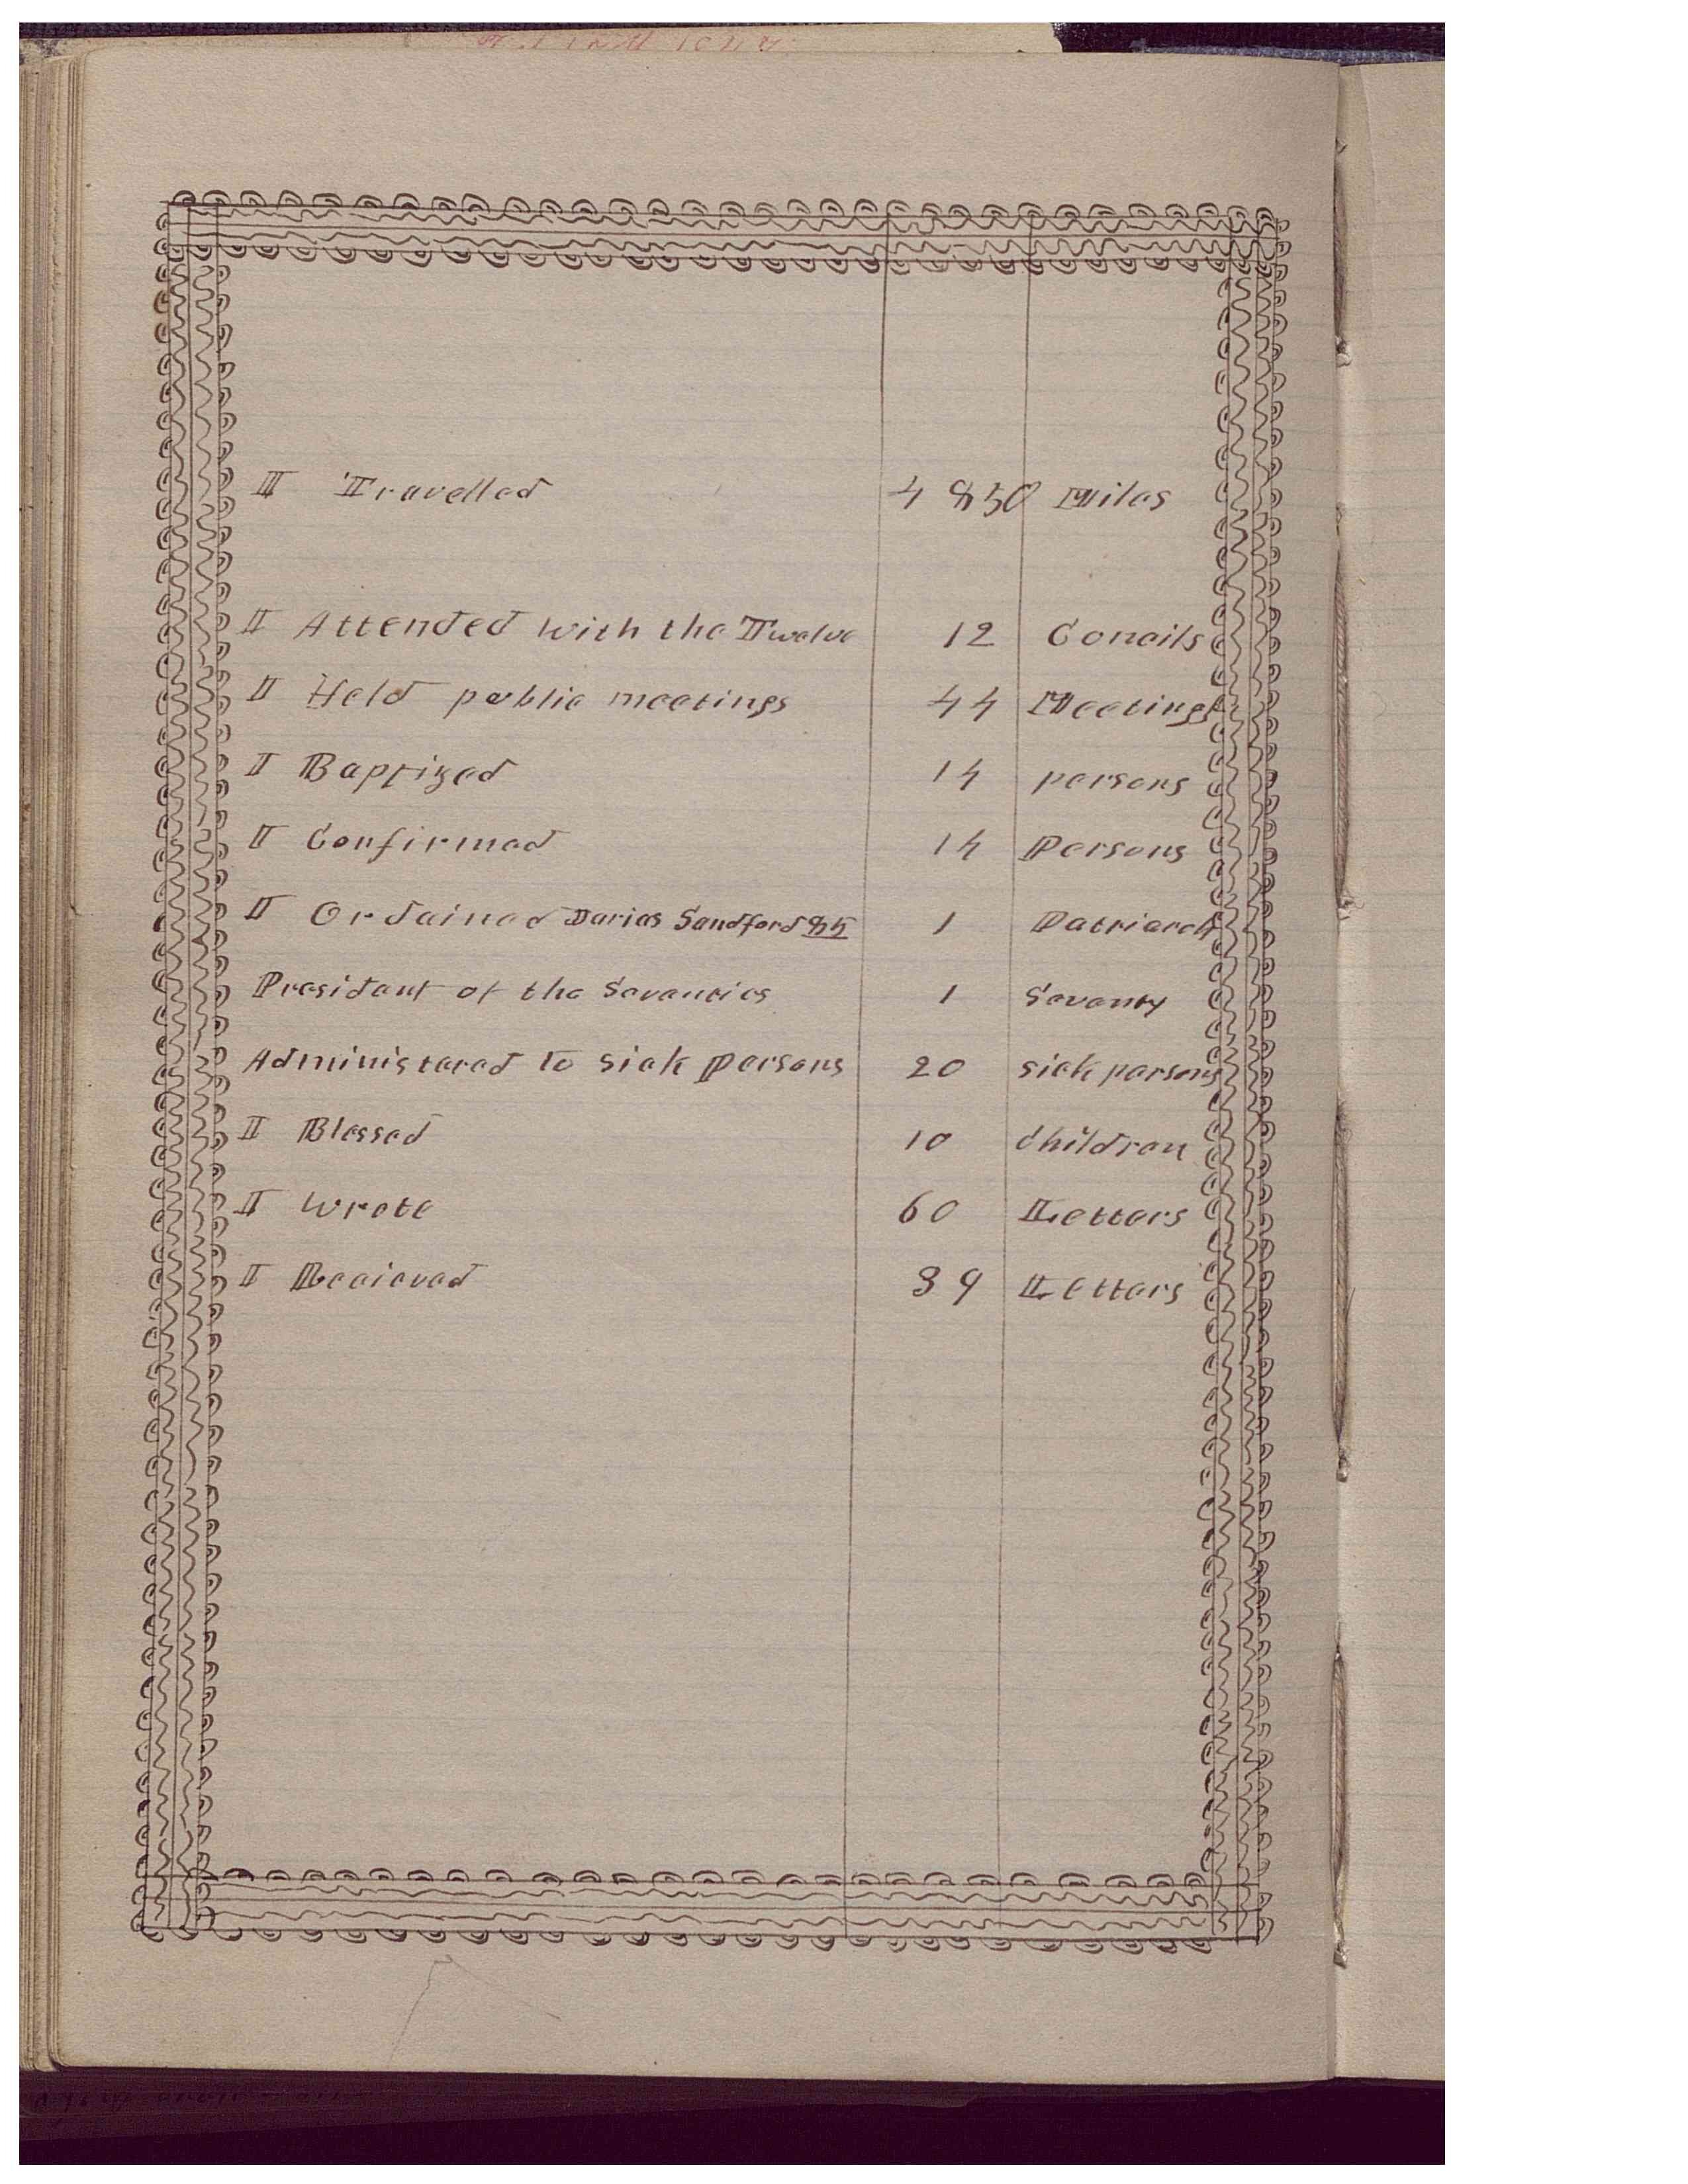 I Travelled 4850 Miles
I Attended with the Twelve 12 Concils
I Held public meetings 44 Meetings
I Baptized 14 persons
I Confirmed 14 Persons
I Ordained Darias Sandford 85 1 Patriarch
Presidant of the Seventies 1 Seventy
Administered to Sick Persons 20 sick persons
I Blessed 10 children
I wrote 60 Letters
I Recieved 39 Letters